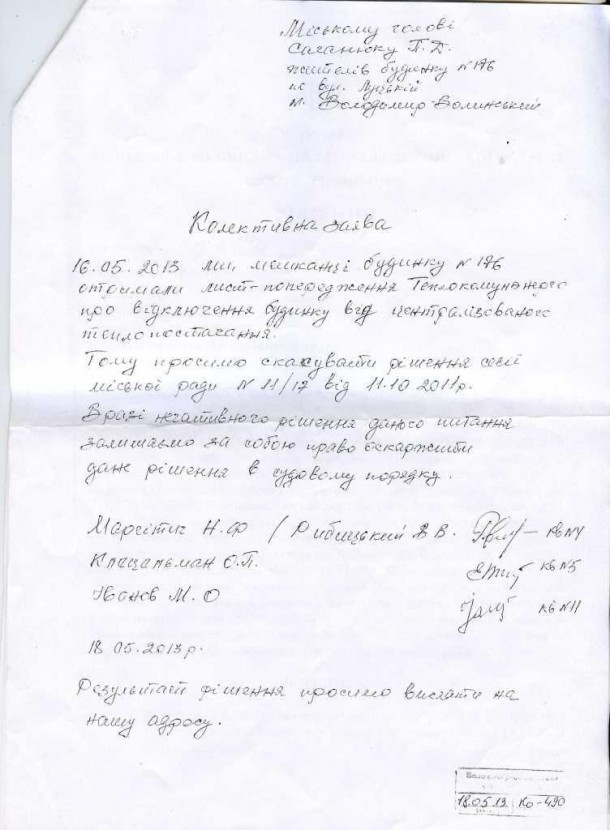 Міському голові
Саганюку П.Д.
жителів будинку №176
по вул. Луцькій
м. Володимир-Волинський
Колективна заява
16.05.2013 ми, мешканці будинку №176
отримали лист-попередження Теплокомуненерго
про відключення будинку від централізованого
теплопостачання.
Тому просимо скасувати рішення сесії
міської ради № 11/17 від 11.10 2011р.
В разі негативного рішення даного питання
залишаємо за собою право оскаржити
дане рішення в судовому порядку.
Н.Ф / Рибицький В В. кв №4
О.П. кв №5
Іванов М. О кв №11
18 05.2013р.
Результат рішення просимо вислати на
нашу адресу.
18.05.13. Ко-490